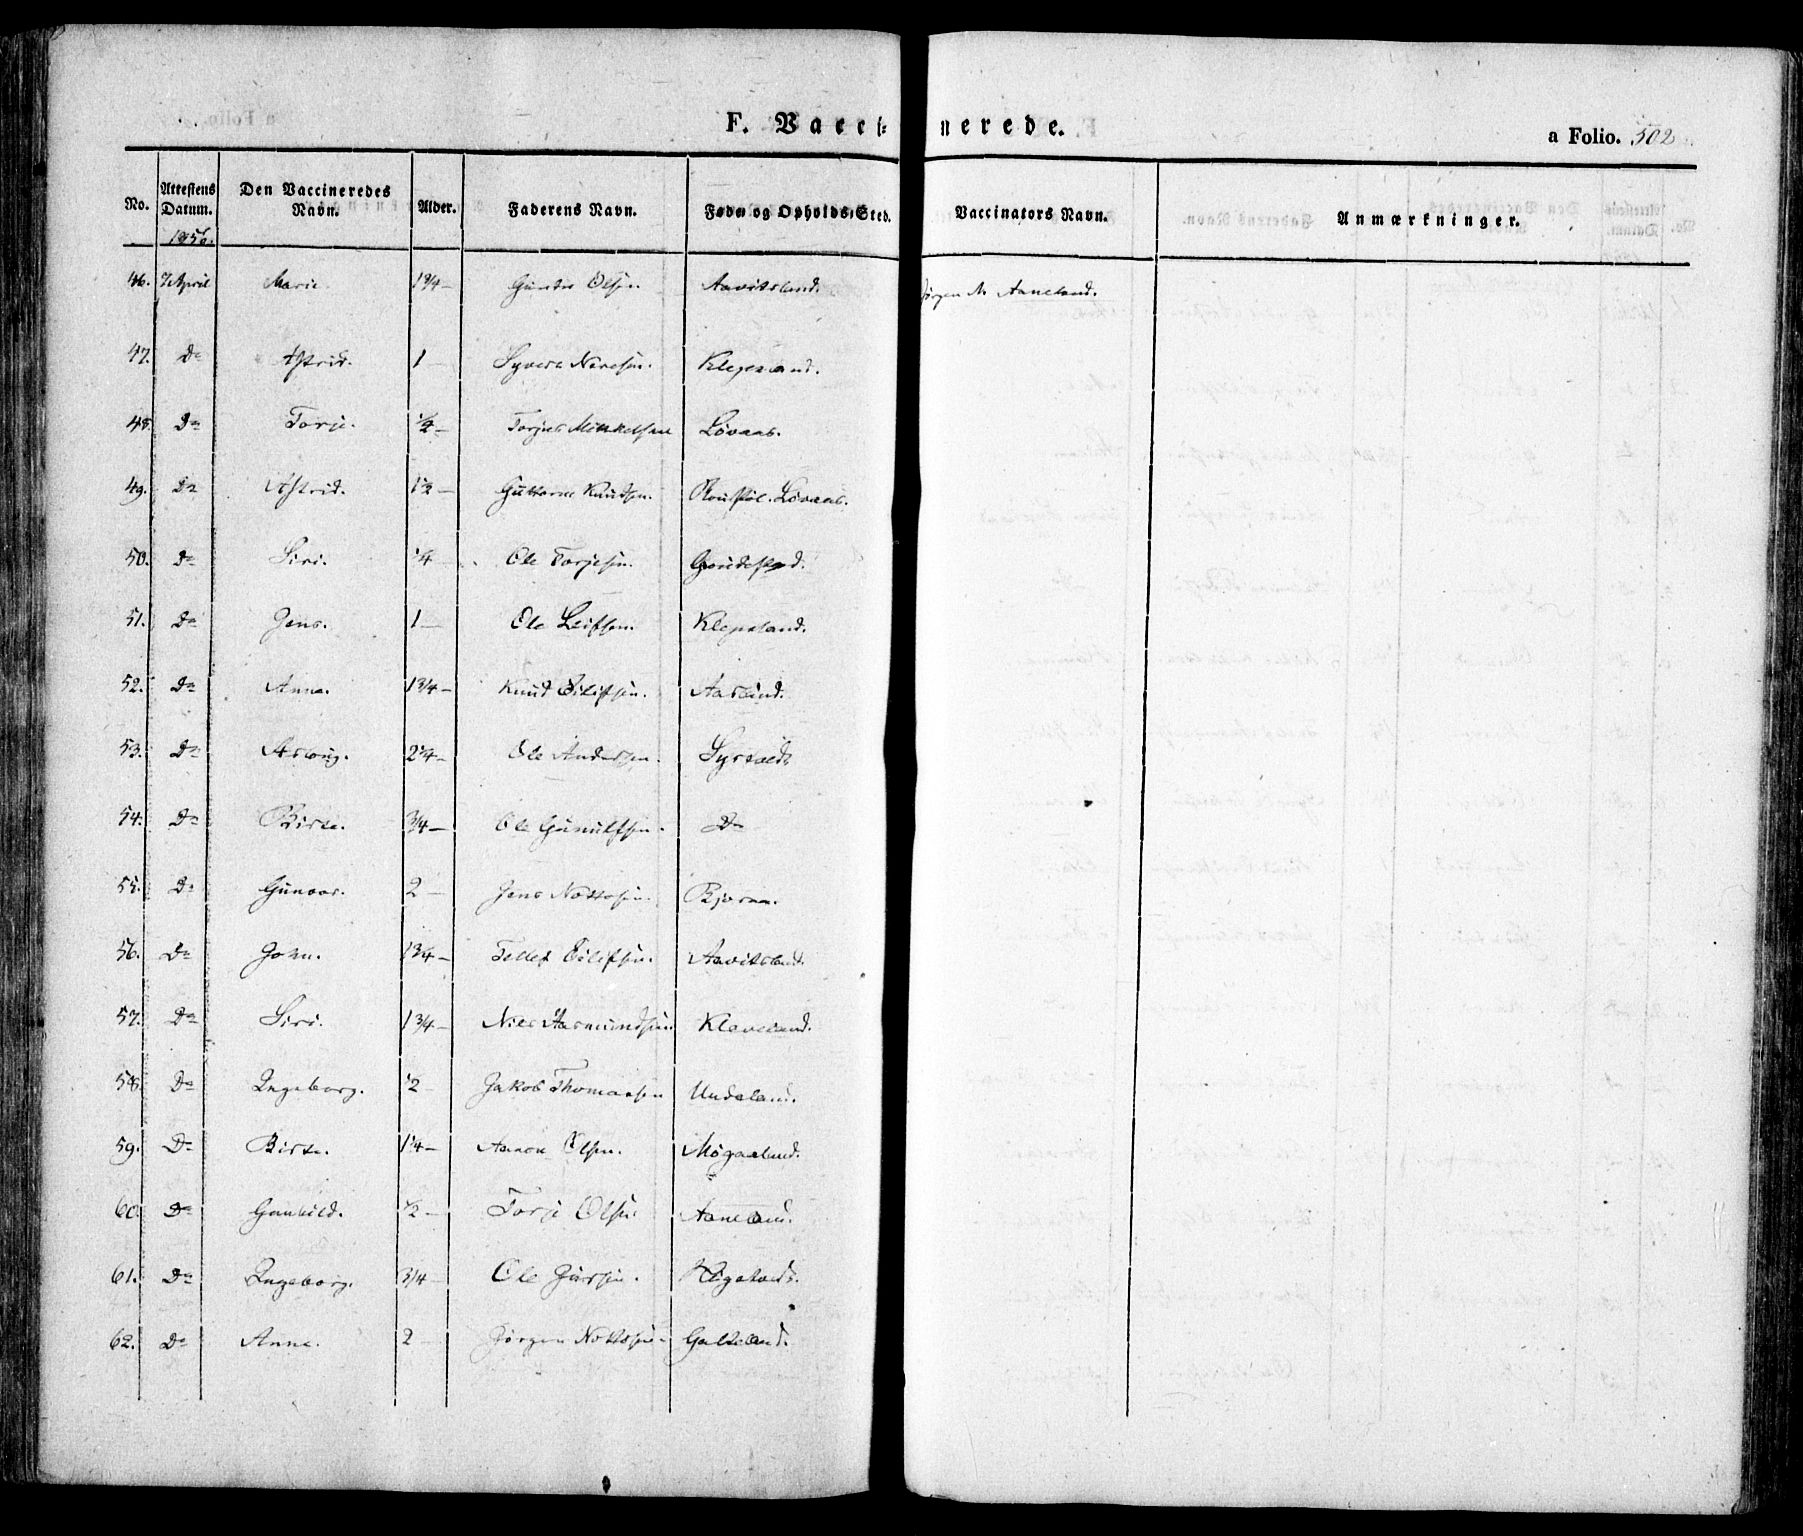 F. Vacci=nerede.
a Folio. 502
No. | Attestens Datum. 1856. | Den Vaccineredes Navn. | Alder. | Faderens Navn. | Føde og Opholds-Sted. | Vaccinators Navn. | Anmærkninger.
46. 7 April Marie. 1 3/4 – Gunder Olsen Aavitsland. Jørgen N. Aaneland.
47. Do Astrid. 1 – Syvert Klepsland.
48. Do Torje. Torjus Lövaas.
49. Do Astrid. 1 1/2 – Guttorm Knudsen. Lövaas.
50. Do Siri. 1/4 Ole Torjesen.
51. Do Jens. 1 – Ole Leifsen. Klepsland.
52. Do Anna. 1 3/4 – Knud Eilifsen.
53. Do 2 1/4 – Ole Andersen.
54. Do Birte. 3/4 – Ole Gunulfsen. Do
55. Do Gunvor. 2 – Jens
56. Do John. 1 3/4 – Tellef Eilifsen. Aavitsland.
57. Do Siri. 1 3/4 – Niels Aasmundsen Kleveland.
58. Do Ingeborg. 1/2 – Jakob Thomassen Undeland.
59. Do Birte. 1 1/4 – Aanon Olsen.
60. Do Gunhild. 1/2 – Torje Olsen Aaneland.
61. Do Ingeborg. 3/4 – Ole
62. Do Anne. 2 – Jørgen